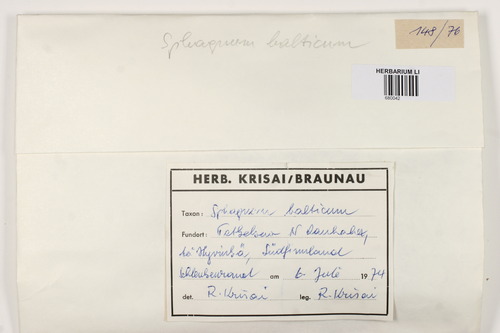 Sphagnum balticum
148/76
HERBARIUM LI
680042
HERB. KRISAI/BRAUNAU
Taxon: Sphagnum balticum
Fundort: N
bei Hyvinkä, Südfinnland
am 6. Juli 1974
det. R. Krisai leg. R. Krisai